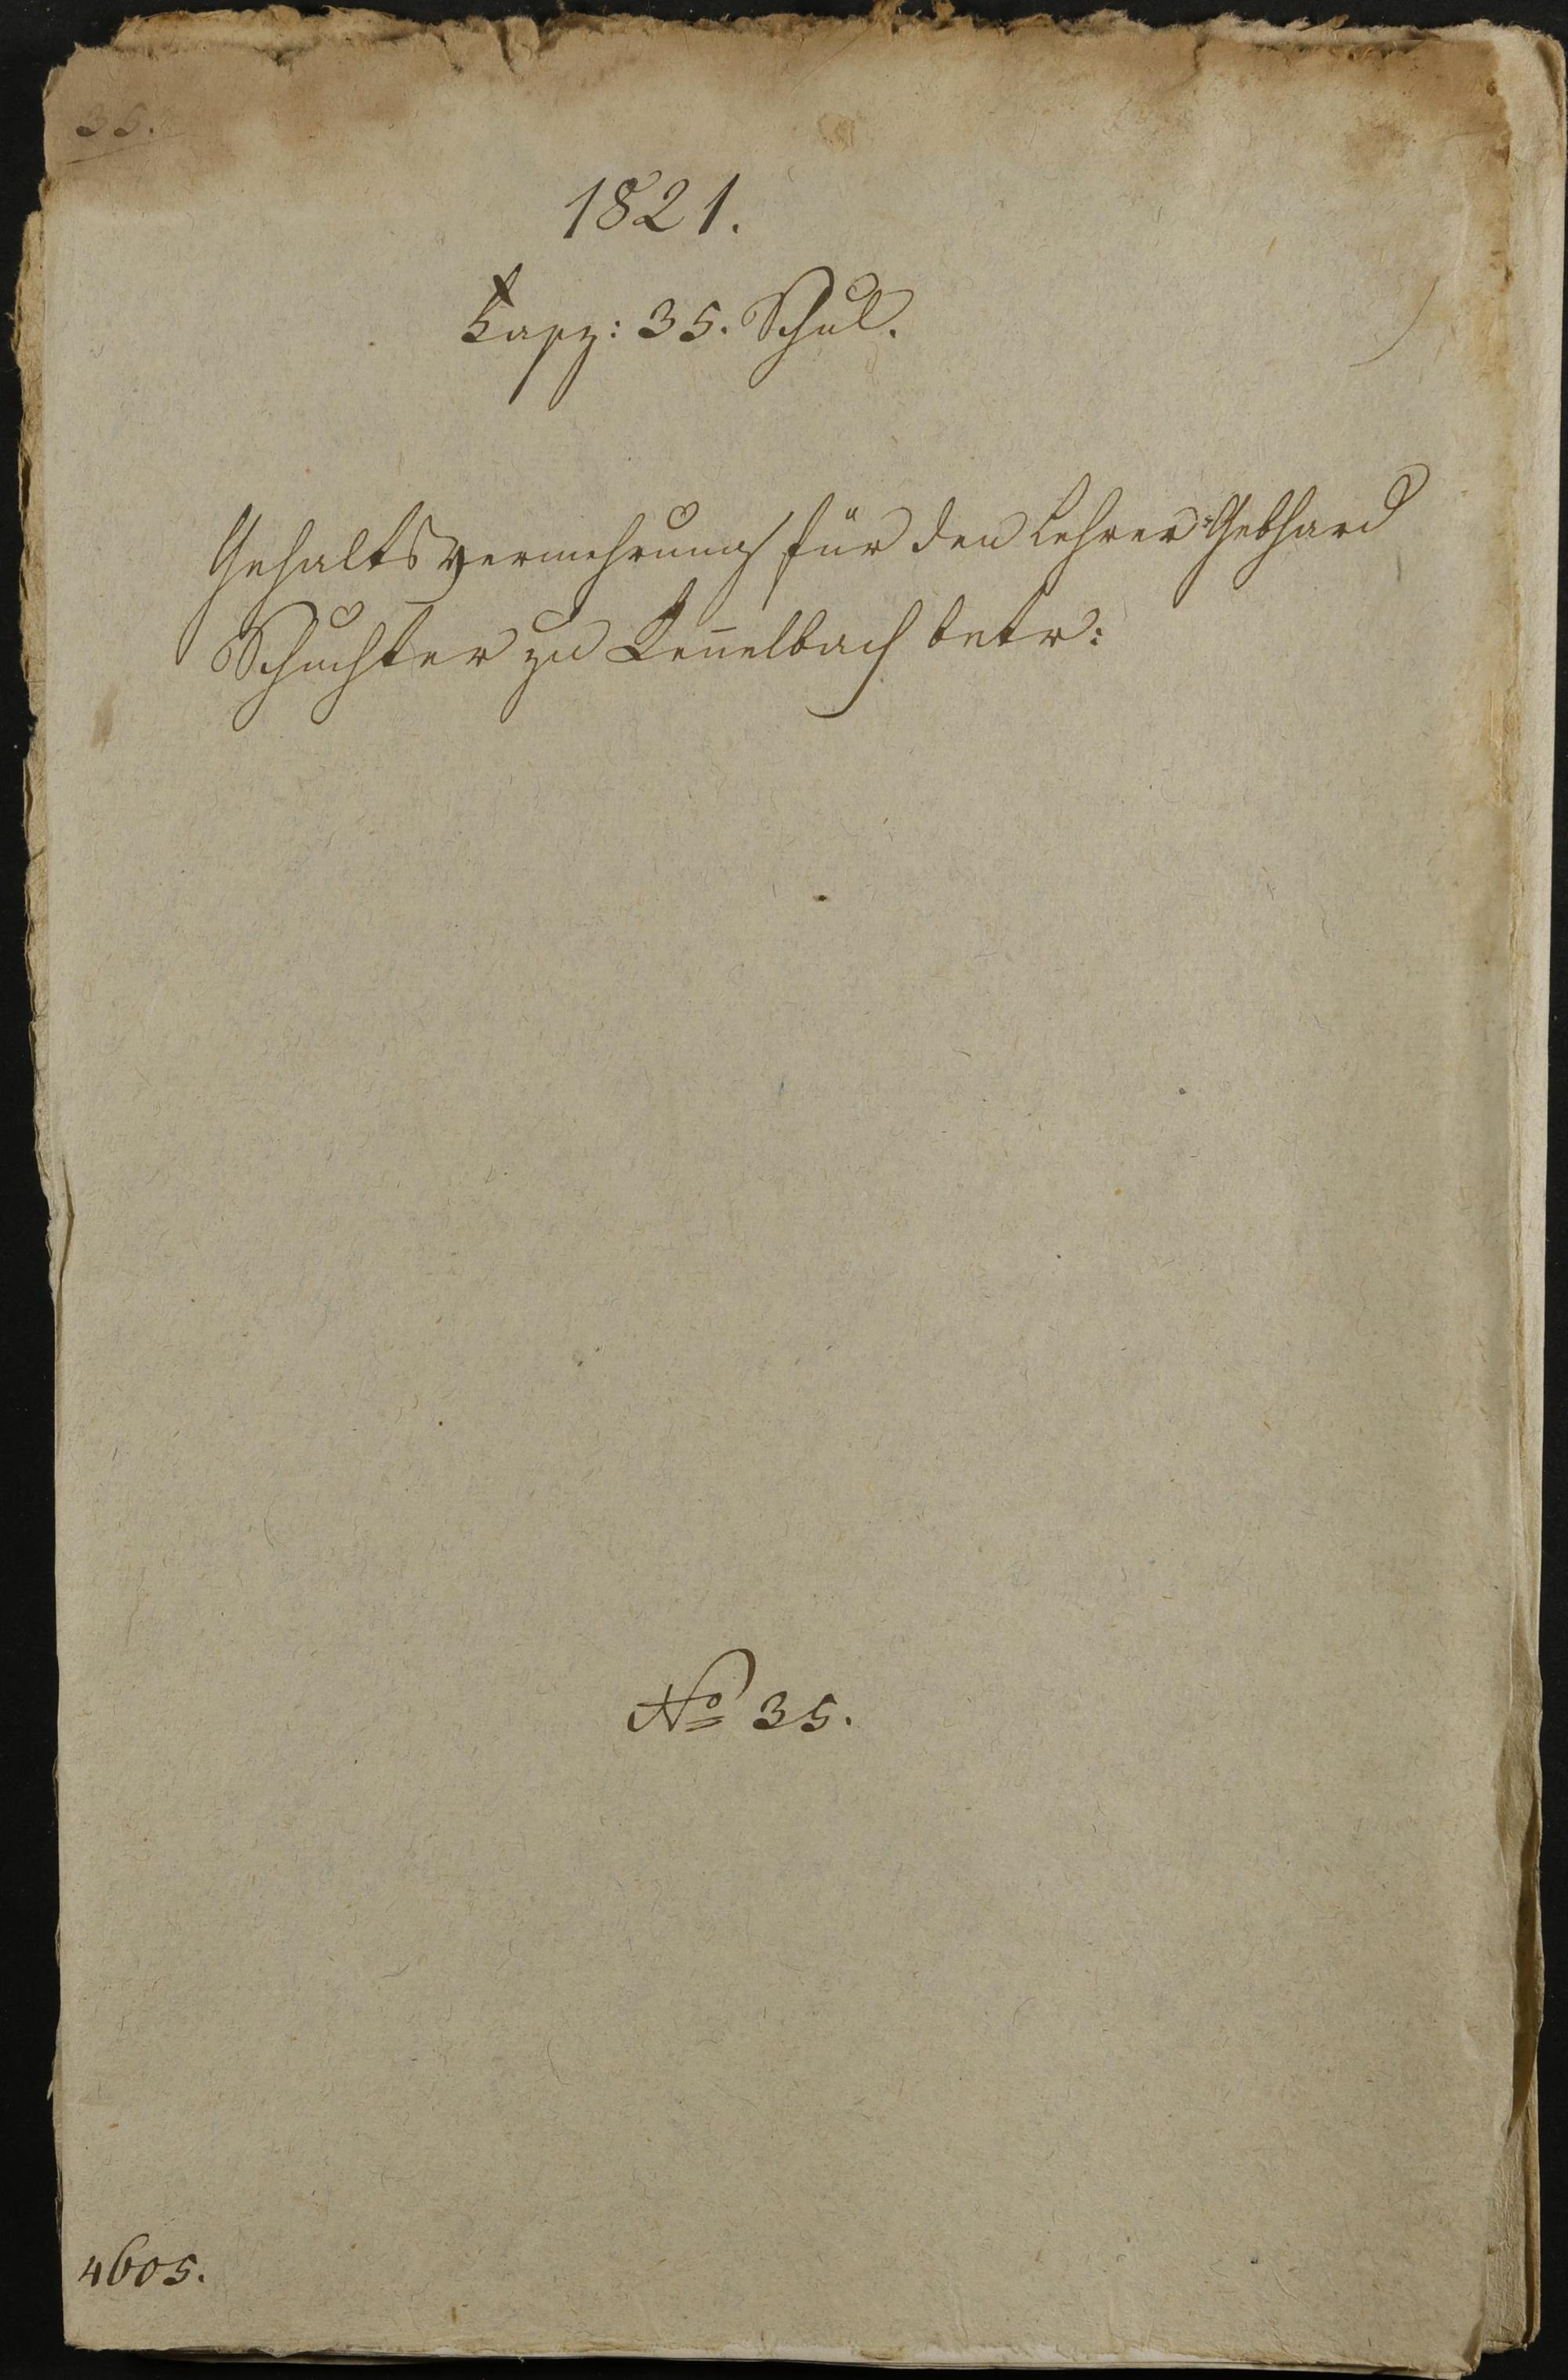 35.
1821.
Fasz: 35. Schul.
Gehaltsvermehrung für den Lehrer Gebhard
Schuchter zu Keñelbach betr:
No 35.
4605.